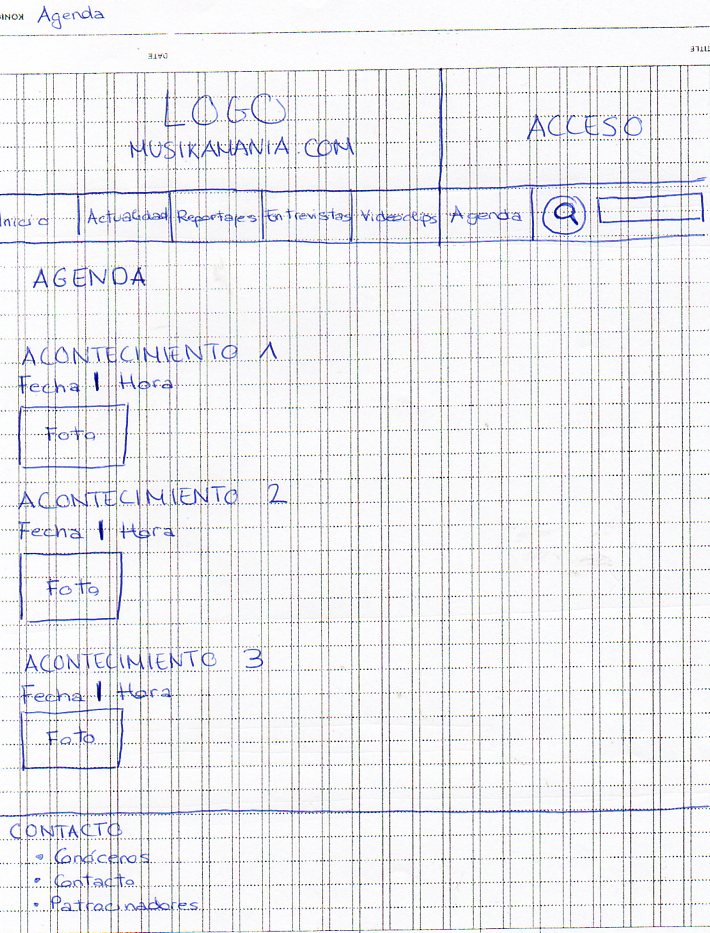 Agenda
DATE
TITLE
LOGO
MUSIKAMANIA.COM
ACCESO
Inicio Actualidad Reportajes Entrevistas Videoclips Agenda
AGENDA
ACONTECIMIENTO 1
Fecha | Hora
Foto
ACONTECIMIENTO 2
Fecha | Hora
Foto
ACONTECIMIENTO 3
Fecha | Hora
Foto
CONTACTO
• Conócenos
• Contacto
• Patrocinadores